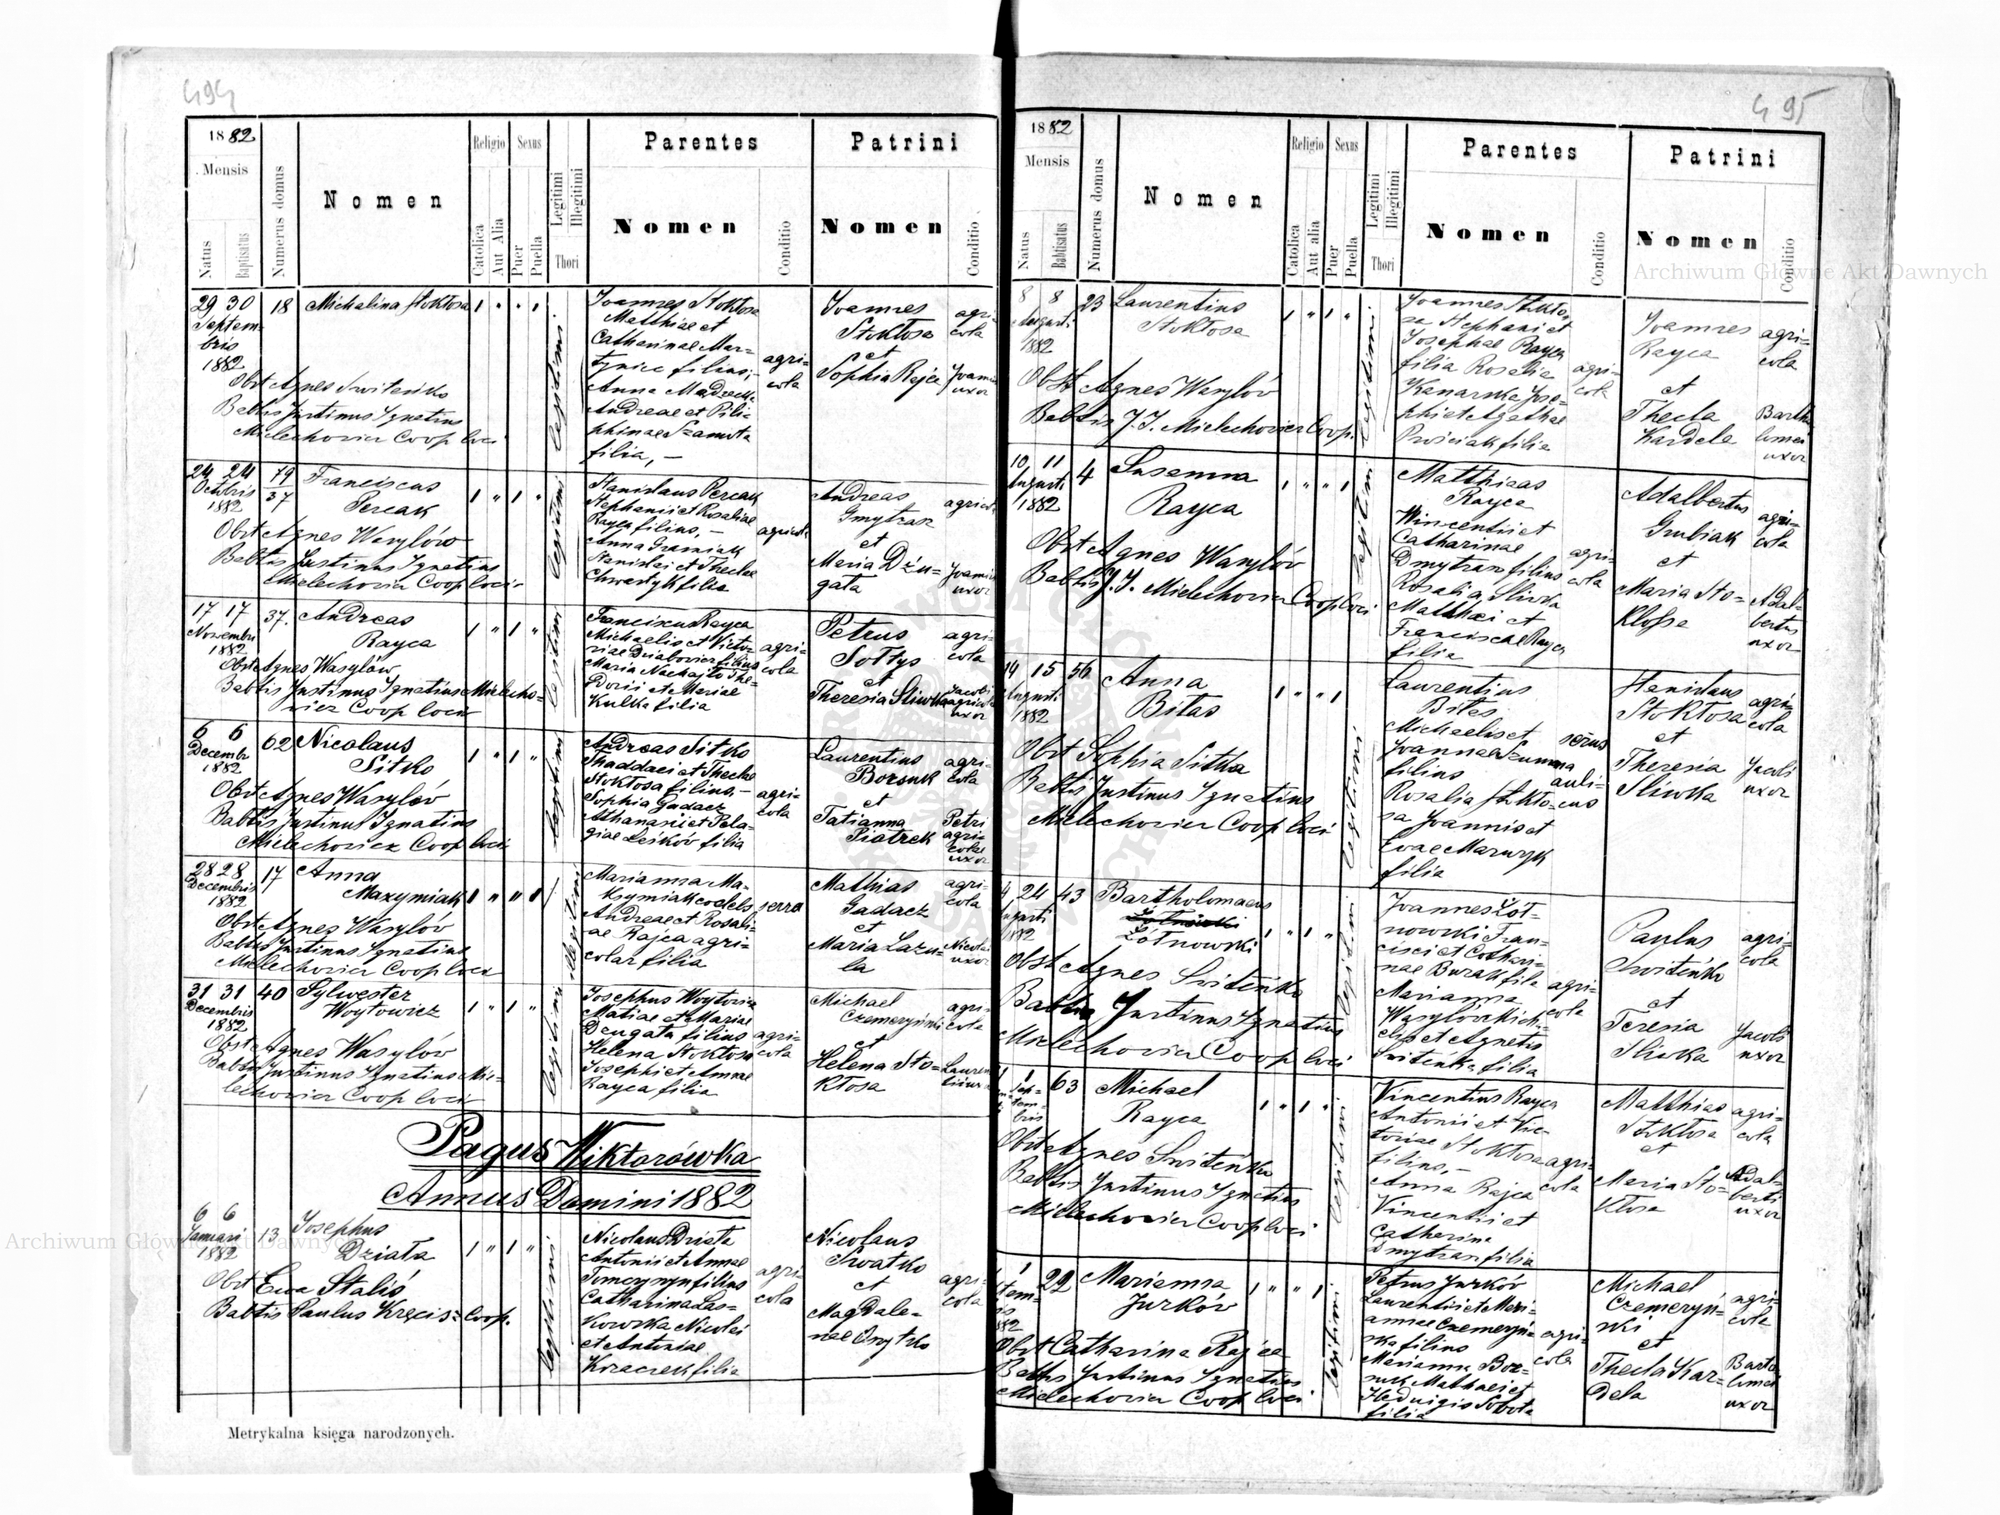 494
1882
Mensis
Natus
Baptisatus
Numerus domus
Nomen
Religio
Catolica
Aut Alia
Sexus
Puer
Puella
Legitimi
Illegitimi
Thori
Parentes
Nomen
Conditio
Patrini
Nomen
Conditio
29 30
Septem-
bris
1882
18
Michalina Stoktosa
Obst Agnes Switeńko
Babtis Justinus Ignatius
Mielechowicz Coop loci
legitimi
Joannes Stoktosa
Matthiae et
Catharinae Mar-
filius,-
Anna
Andreae et
filia,-
agri-
cola
Joannes
Stoktosa
et
Sophia Rajca
agri-
cola
Joannis
uxor
24 24
Octobris
1882
79
37
Franciscus
Percak
Obst Agnes Wasylów
Babtis Justinus Ignatius
Mielechowicz Coop loci
legitimi
Stanislaus Percak
Stephani et Rosaliae
Rayca filius,-
Anna
Stanislai et Theclae
Chwastyk filia
agricola
Andreas
Gmytrasz
et
Maria Dżu-
gata
agricola
Joannis
uxor
17 17
Novembri
1882
37.
Andreas
Rayca
Obst Agnes Wasylów
Babtis Justinus Ignatius Mielecho-
wicz Coop loci
legitimi
Franciscus Rayca
Michaelis et Victo-
riae filius
Maria
et Mariae
Kulka filia
agri-
cola
Petrus
Sołtys
et
Theresia Sliwka
agri-
cola
Jacobi
agricola
uxor
6 6
Decembr
1882
62
Nicolaus
Sitko
Obst Agnes Wasylów
Babtis Justinus Ignatius
Mielechowicz Coop loci
legitimi
Andreas Sitko
Thaddaei et Theclae
Stoktosa filius,-
Sophia Gadacz
Athanasii et Pela-
giae Leśków filia
agri-
cola
Laurentius
Borsuk
et
Tatianna
Piotrek
agri-
cola
Petri
agri-
colae
uxor
28 28
Decembris
1882
17
Anna
Maxymiak
Obst Agnes Wasylów
Babtis Justinus Ignatius
Mielechowicz Coop loci
illegitimi
Marianna Ma-
xymiak
Andreae et Rosali-
ae Rajca agri-
colar filia
serva
Mathias
Gadacz
et
Maria Lazu-
la
agri-
cola
Nicolai
uxor
31 31
Decembris
1882
40
Sylwester
Woytowicz
Obst Agnes Wasylów
Babtis Justinus Ignatius Mie-
lechowicz Coop loci
legitimi
Josephus Woytowicz
Matiae et Mariae
filius
Helena Stoktosa
Josephi et Annae
Rayca filia
agri-
cola
Michael
Czemeryński
et
Helena Sto-
ktosa
agri-
cola
Pagus Wiktorówka
Annus Domini 1882
6 6
Januari
1882
13
Josephus
Działa
Obst Ewa Staliś
Babtis Paulus Kręcis= Coop.
legitimi
Nicolaus Działa
Antonii et Annae
filius
Catharina Las-
kowska Nicolai
et Antoniae
Krzaczek filia
agri-
cola
Nicolaus
Swatko
et
Magdale-
nae
agri-
cola
Metrykalna księga narodzonych.
495
1882
Mensis
Natus
Babtisatus
Numerus domus
Nomen
Religio
Catolica
Aut alia
Sexus
Puer
Puella
Legitimi
Illegitimi
Thori
Parentes
Nomen
Conditio
Patrini
Nomen
Conditio
8 8
Augusti
1882
23
Laurentius
Stoktosa
Obst Agnes Wasylów
Babtis J. I. Mielechowicz Coop.
legitimi
Joannes Stokto-
sa Stephani et
Josephae Rayca
filia Rosalia
Kanarska Jose-
phi et Agathae
filia
agri-
cola
Joannes
Rayca
et
Thecla
Kardela
agri-
cola
Barthо-
lomei
uxor
10 11
Augusti
1882
4
Susanna
Rayca
Obst Agnes Wasylów
Babtis J. I. Mielechowicz Coop loci
legitimi
Matthias
Rayca
Wincentii et
Catharinae
Dmytrasz filius
Rosalia Sliwka
Matthaei et
Franciscae Rayca
filia
agri-
cola
Adalbertus
Grubiak
et
Maria Sto-
klossa
agri-
cola
Adal-
bertus
uxor
14 15
Augusti
1882
56
Anna
Bitas
Obst Sophia Sitka
Babtis Justinus Ignatius
Mielechowicz Coop loci
legitimi
Laurentius
Bites
Michaelis et
Joannae Szumna
filius
Rosalia Stokto-
sa Joannis et
Evae Mazuryk
filia
servus
auli-
cus
Stanislaus
Stoktosa
et
Theresia
Sliwka
agri-
cola
Jacobi
uxor
24
1882
43
Bartholomaeus
Żółnowski
Obst Agnes Switeńko
Babtis Justinus Ignatius
Mielechowicz Coop loci
legitimi
Joannes Żół-
nowski Fran-
cisci et Cathari-
nae Burak filii
Marianna
Wasylów Mich-
elis et Agnetis
Switeńka filia
agri-
cola
Paulus
Switeńko
et
Teresia
Sliwka
agri-
cola
Jacobi
uxor
1
Sep-
tem
bris
63
Michael
Rayca
Obst Agnes Switeńko
Babtis Justinus Ignatius
Mielechowicz Coop loci
legitimi
Vincentius Rayca
Antonii et Vic-
toriae Stoktosa
filius,-
Anna Rajca
Vincentii et
Catharina
Dmytrasz filia
agri-
cola
Matthias
Stoktosa
et
Maria Sto-
ktosa
agri-
cola
Adal-
berti
uxor
1
22
Marianna
Jurków
Obst Catharina Rajca
Babtis Justinus Ignatius
Mielechowicz Coop loci
legitimi
Petrus Jurków
Laurentii et Mari-
annae Czemeryń-
ska filius
Marianna Bor-
suk Mathaei et
Hedwigis Sobota
filia
agri-
cola
Michael
Czemeryń-
ski
et
Thecla Kar-
dela
agri-
cola
Barto-
lomei
uxor
Archiwum Główne Akt Dawnych
Archiwum Główne Akt Dawnych